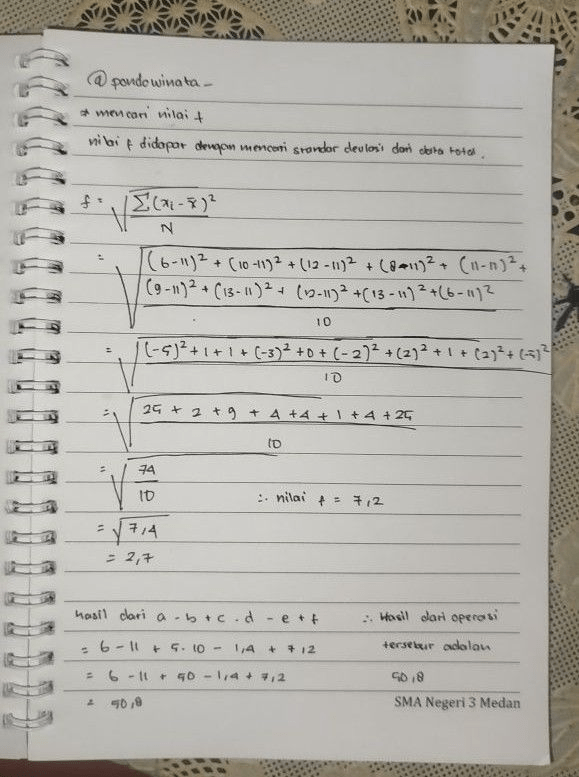 @pondowinata-
* mencari nilai f
nilai f didapat dengan mencari standar deviasi dari data total.
f = √(Σ(xᵢ - x̄)² / N)
= √((6-11)² + (10-11)² + (12-11)² + (8-11)² + (11-11)² +
(9-11)² + (13-11)² + (12-11)² + (13-11)² + (6-11)² / 10)
= √((-5)² + 1 + 1 + (-3)² + 0 + (-2)² + (2)² + 1 + (2)² + (-5)² / 10)
= √(25 + 2 + 9 + 4 + 4 + 1 + 4 + 25 / 10)
= √(74 / 10)
∴ nilai f = 7,2
= √7,4
= 2,7
Hasil dari a - b + c . d - e + f
= 6 - 11 + 5.10 - 1,4 + 7,2
= 6 - 11 + 50 - 1,4 + 7,2
= 50,8
∴ Hasil dari operasi
tersebut adalah
50,8
SMA Negeri 3 Medan